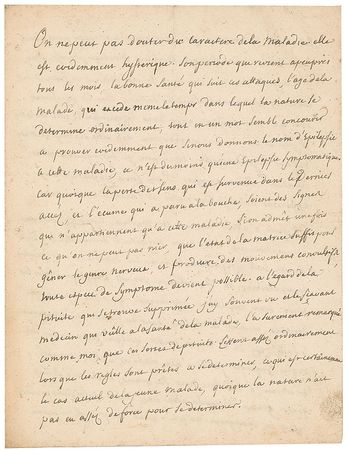 On ne peut pas douter du caractere de la maladie. elle
est evidemment hysterique. Son periode qui revient a peu près
tous les mois, la bonne santé qui suit ces attaques, l'age de la
malade, qui excede meme le temps dans lequel la nature se
determine ordinairement, tout en un mot semble concourir
a prouver evidemment que si nous donnons le nom d'Epilepsie
a cette maladie, ce n'est du moins qu'une Epilepsie symptomatique,
car quoique la perte des sens qui est survenue dans le dernier
accès, et l'ecume qui a paru a la bouche, soient des signes
qui n'appartiennent qu'a cette maladie, si on admet une fois
ce qu'on ne peut pas nier que l'etat de la matrice suffit pour
gêner le genre nerveux, et produire des mouvemens convulsifs
toute espece de symptome devient possible. a l'egard de la
pituite qui se trouve supprimée j'ay souvent vu et le sçavant
médecin qui veille a la santé de la malade, l'a surement remarqué
comme moi, que ces sortes de pituites cessent assés ordinairement
lors que les regles sont prêtes a se determiner, ce qui est certainement
le cas actuel de la jeune malade, quoique la nature n'ait
pas eu assez de force pour se determiner.